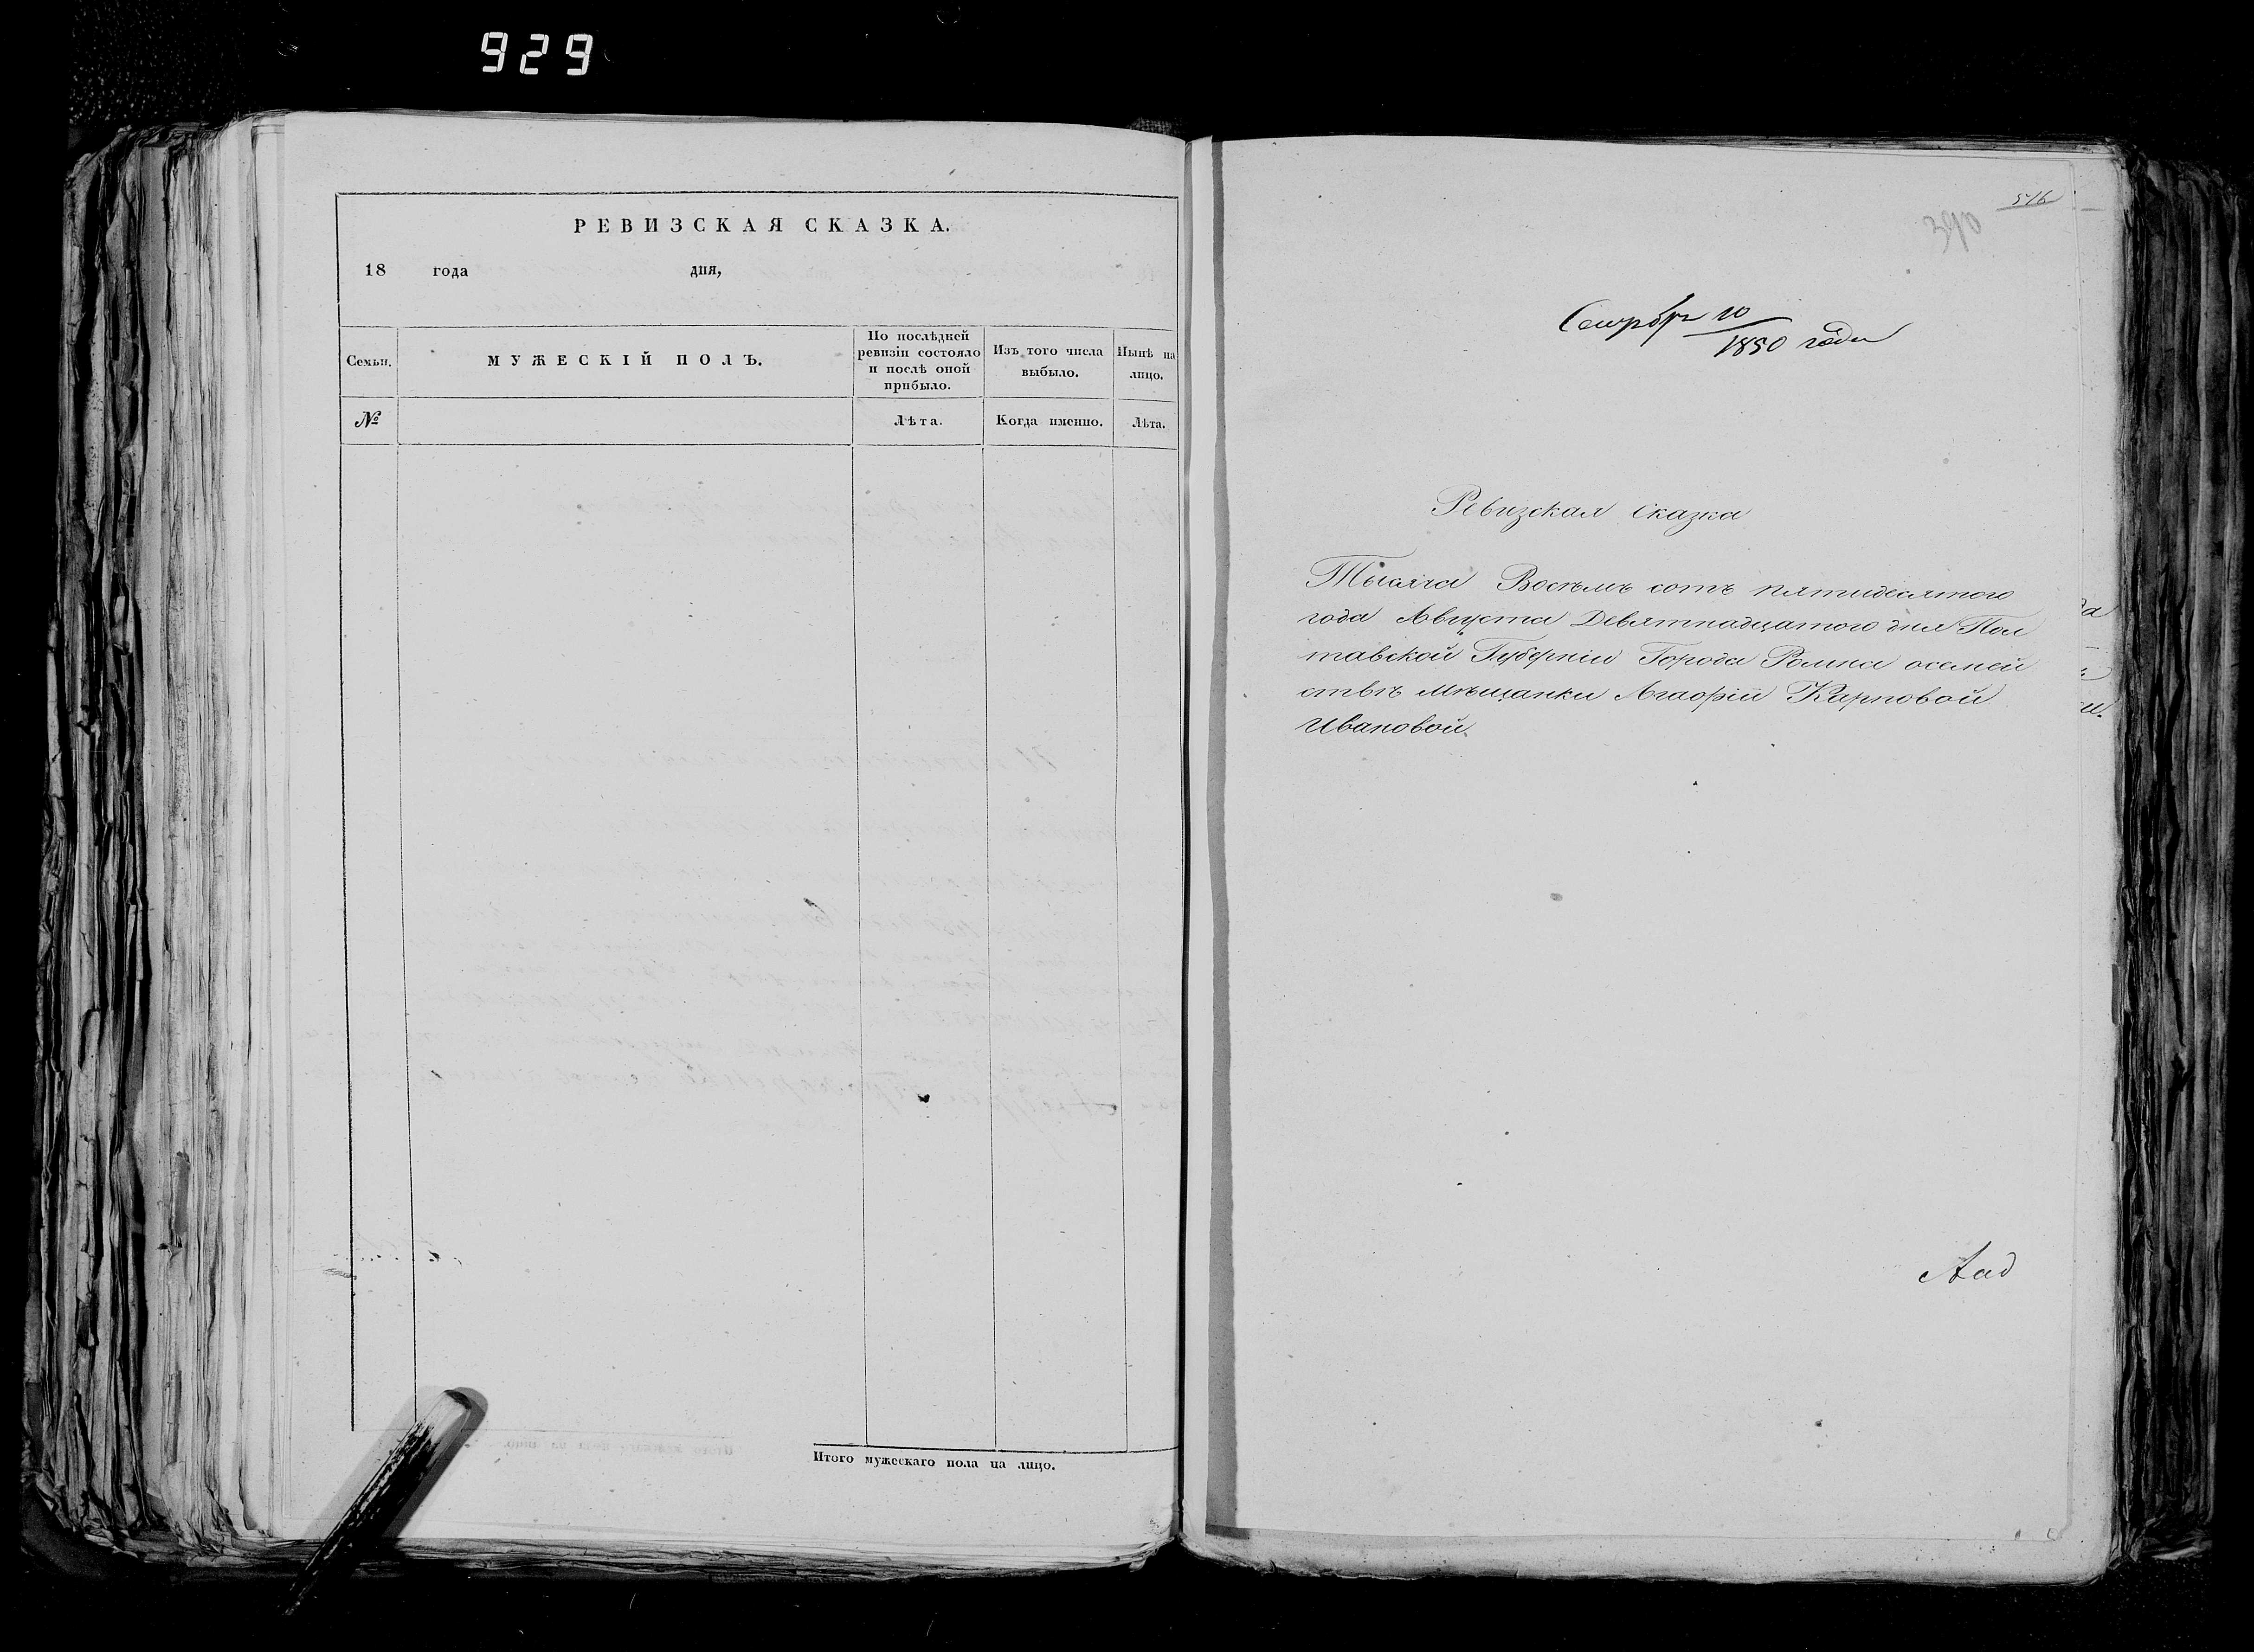 929
РЕВИЗСКАЯ СКАЗКА.
18 года дня,
Семьи.
МУЖЕСКІЙ ПОЛЪ.
По послѣдней
ревизіи состояло
и послѣ оной
прибыло.
Изъ того числа
выбыло.
Нынѣ на
лицо.
№
Лѣта.
Когда именно.
Лѣта.
Итого мужескаго пола на лицо.
516
390
10
1850 года
Ревизская сказка
Тысяча Восемь сотъ пятидесятого
года Августа Девятнадцатого дня Пол
тавской Губерніи Города Ромна осемей
ствѣ Мѣщанки Агафіи Карповой
Ивановой.